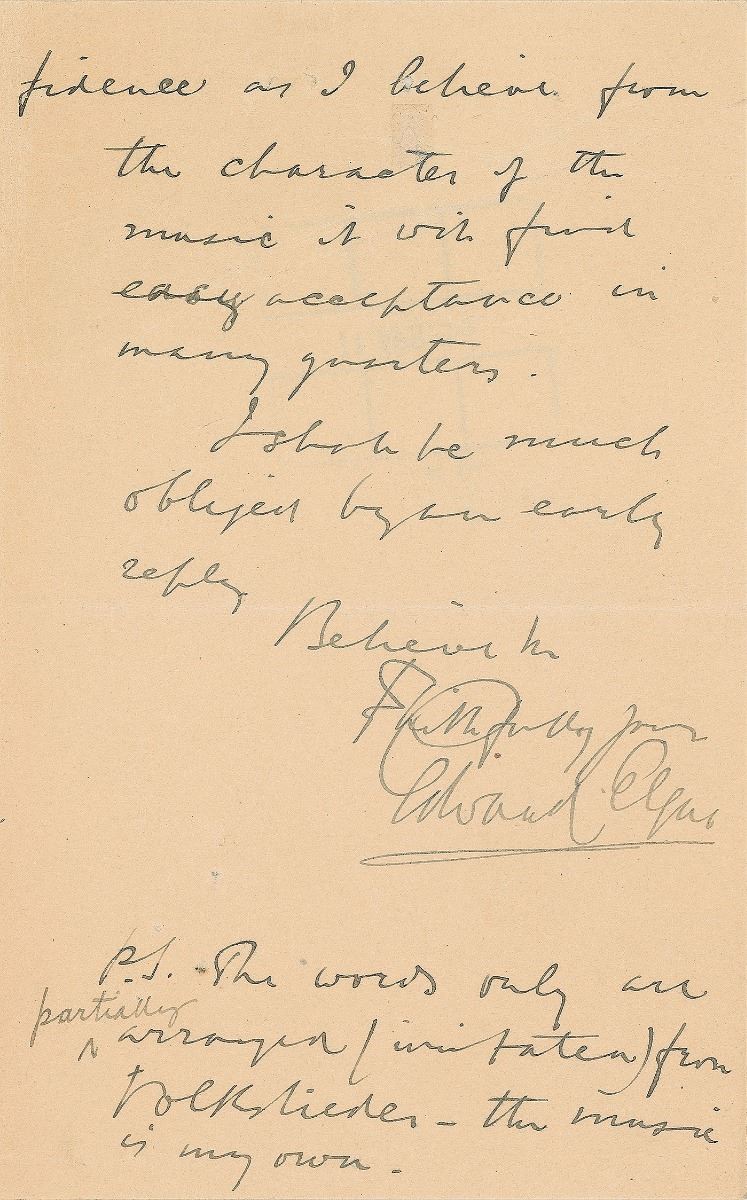 fidence as I believe from
the character of the
music it will find
easy acceptance in
many quarters.
I shall be much
obliged by an early
reply
Believe me
Faithfully yours
Edward Elgar
P.S. The words only are
partially
arranged (imitated) from
Volkslieder – the music
is my own.